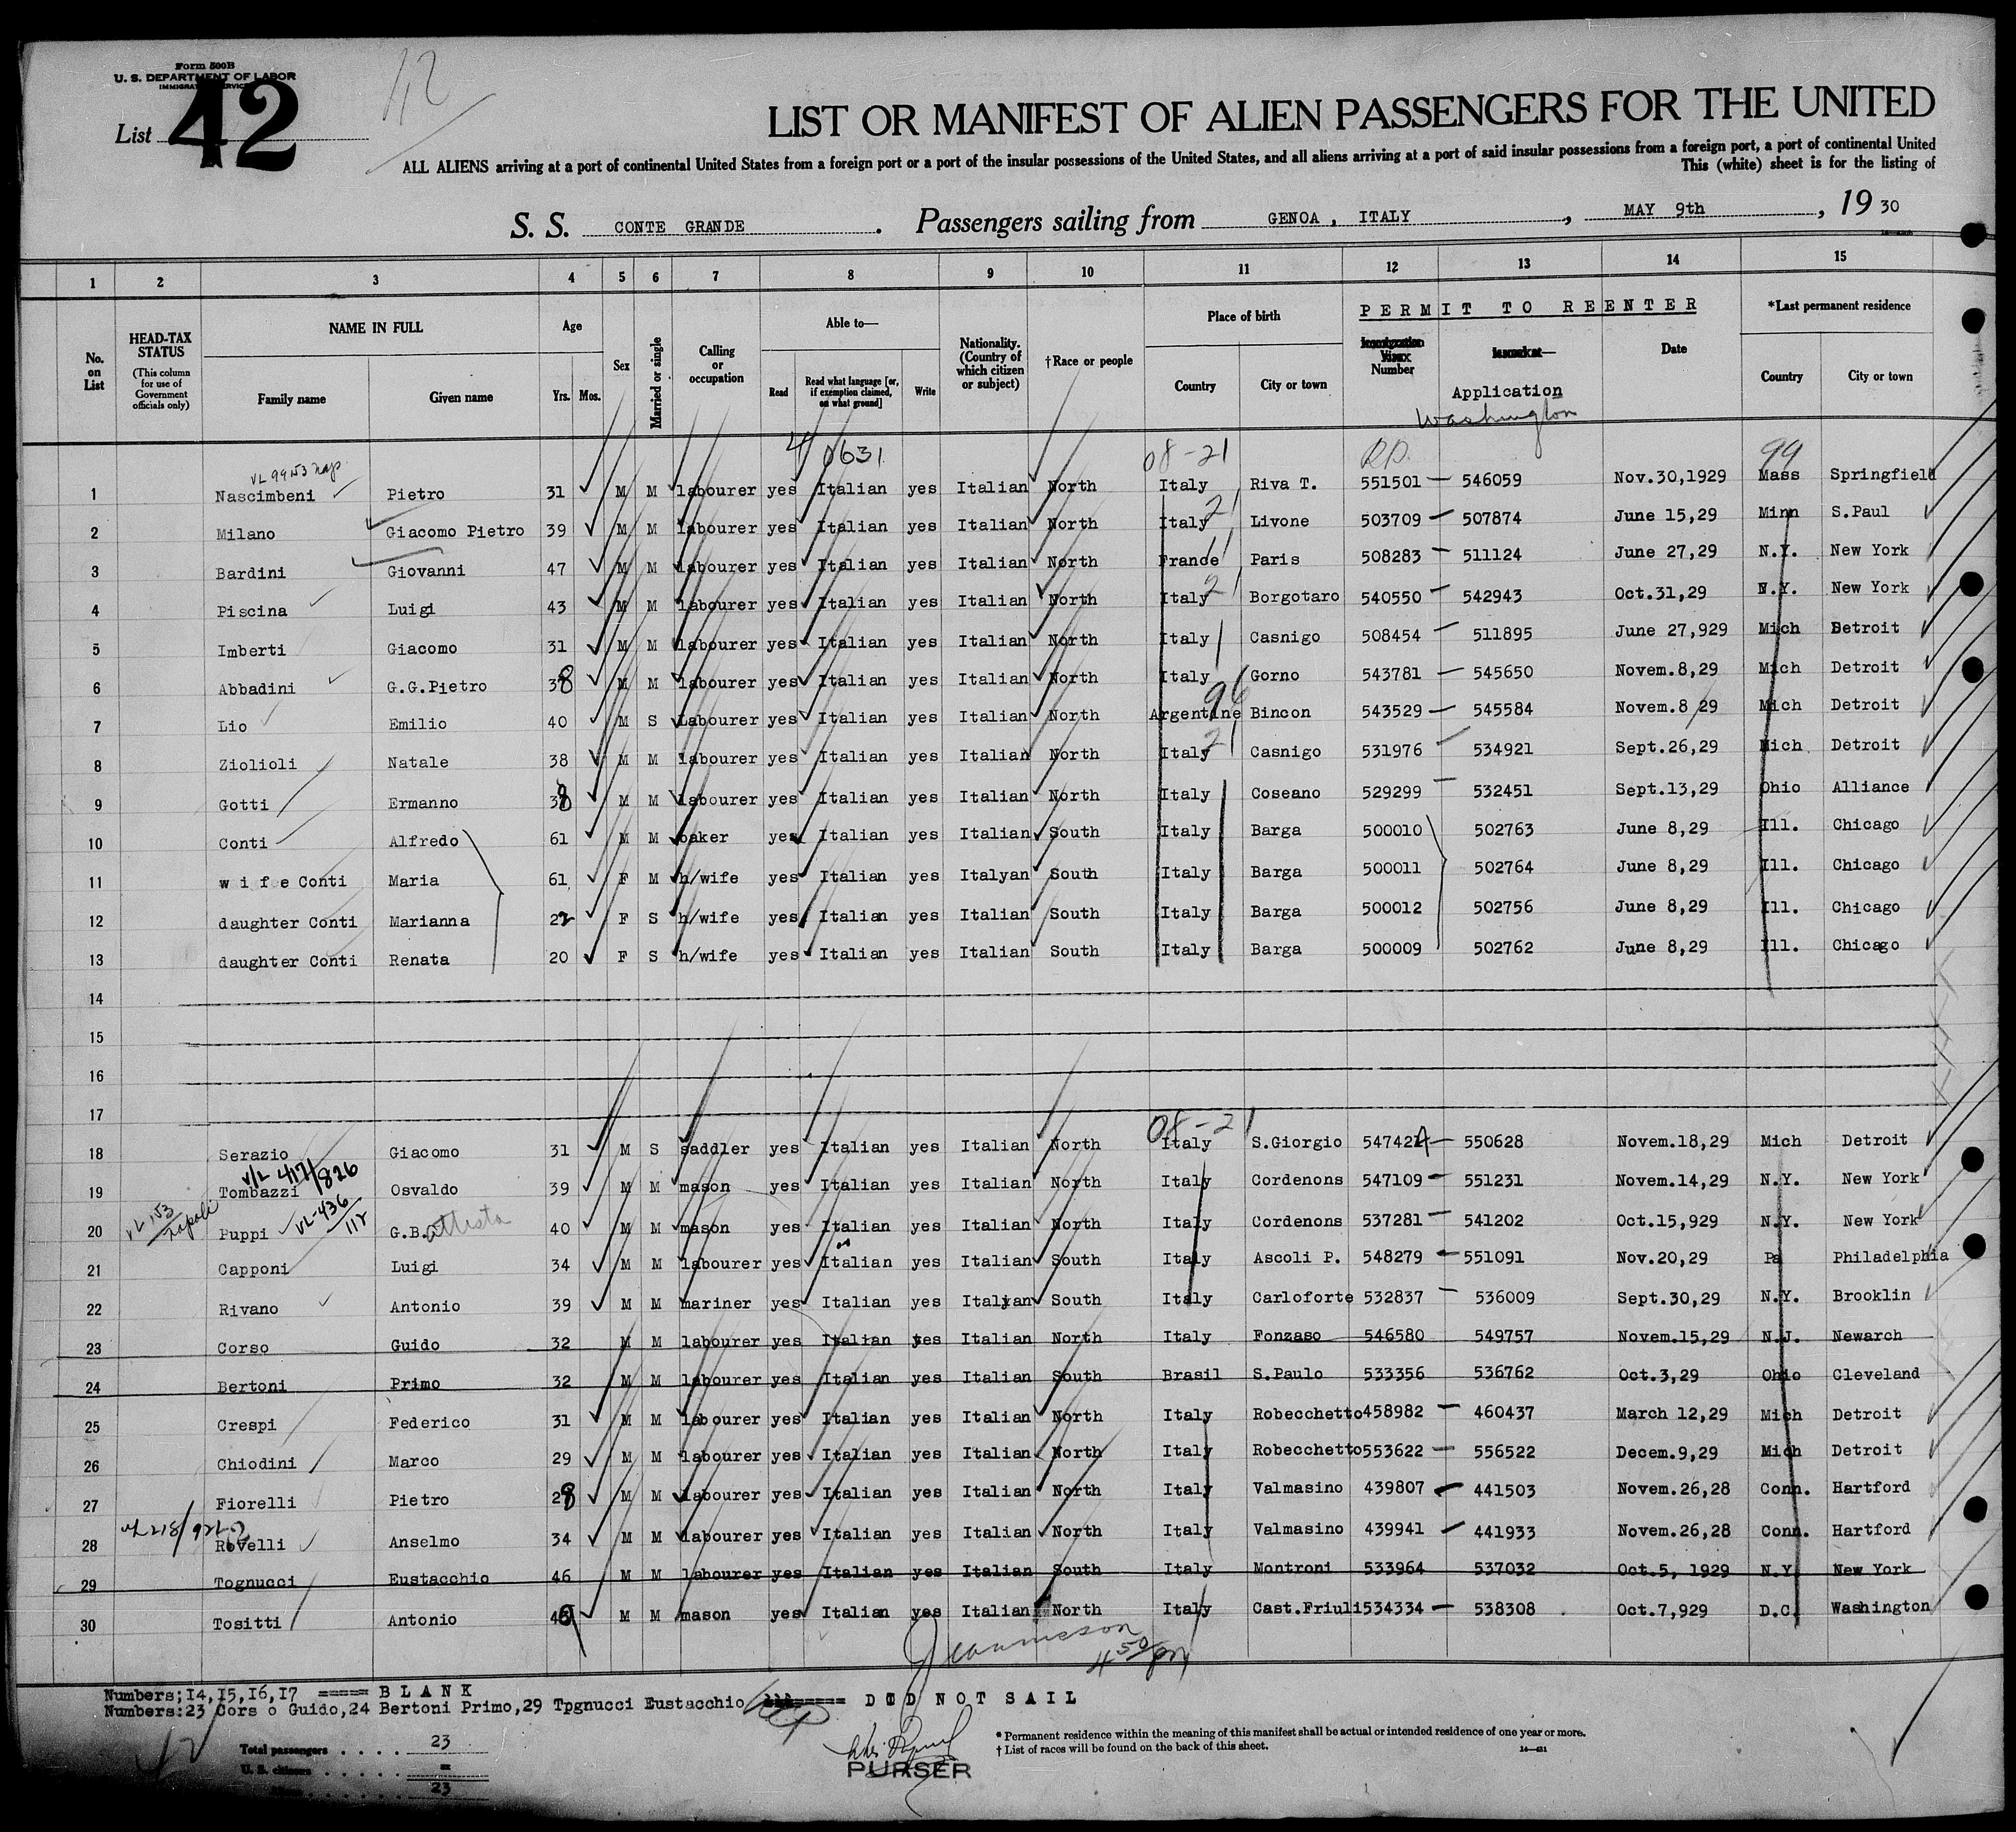 Form 500B
U. S. DEPARTMENT OF LABOR
IMMIGRATION SERVICE
List 42
42
LIST OR MANIFEST OF ALIEN PASSENGERS FOR THE UNITED
ALL ALIENS arriving at a port of continental United States from a foreign port or a port of the insular possessions of the United States, and all aliens arriving at a port of said insular possessions from a foreign port, a port of continental United
This (white) sheet is for the listing of
S. S. CONTE GRANDE . Passengers sailing from GENOA , ITALY , MAY 9th , 19 30
1 2 3 4 5 6 7 8 9 10 11 12 13 14 15
No. on List
HEAD-TAX STATUS (This column for use of Government officials only)
NAME IN FULL
Family name Given name
Age
Yrs. Mos.
Sex
Married or single
Calling or occupation
Able to—
Read Read what language [or, if exemption claimed, on what ground] Write
Nationality. (Country of which citizen or subject)
†Race or people
Place of birth
Country City or town
PERMIT TO REENTER
Immigration Number
Application
Washington
Date
*Last permanent residence
Country City or town
4 0631 08-21 99
VL 99153 nap.
1 Nascimbeni Pietro 31 M M labourer yes Italian yes Italian North Italy Riva T. 551501 — 546059 Nov.30,1929 Mass Springfield
2 Milano Giacomo Pietro 39 M M labourer yes Italian yes Italian North Italy 21 Livone 503709 — 507874 June 15,29 Minn S.Paul
3 Bardini Giovanni 47 M M labourer yes Italian yes Italian North France 11 Paris 508283 — 511124 June 27,29 N.Y. New York
4 Piscina Luigi 43 M M labourer yes Italian yes Italian North Italy 21 Borgotaro 540550 — 542943 Oct.31,29 N.Y. New York
5 Imberti Giacomo 31 M M labourer yes Italian yes Italian North Italy Casnigo 508454 — 511895 June 27,929 Mich Detroit
6 Abbadini G.G.Pietro 38 M M labourer yes Italian yes Italian North Italy Gorno 543781 — 545650 Novem.8,29 Mich Detroit
7 Lio Emilio 40 M S Labourer yes Italian yes Italian North Argentine 96 Bincon 543529 — 545584 Novem.8/29 Mich Detroit
8 Ziolioli Natale 38 M M labourer yes Italian yes Italian North Italy 21 Casnigo 531976 — 534921 Sept.26,29 Mich Detroit
9 Gotti Ermanno 38 M M labourer yes Italian yes Italian North Italy Coseano 529299 — 532451 Sept.13,29 Ohio Alliance
10 Conti Alfredo 61 M M baker yes Italian yes Italian South Italy Barga 500010 502763 June 8,29 Ill. Chicago
11 w i f e Conti Maria 61 F M h/wife yes Italian yes Italyan South Italy Barga 500011 502764 June 8,29 Ill. Chicago
12 daughter Conti Marianna 22 F S h/wife yes Italian yes Italian South Italy Barga 500012 502756 June 8,29 Ill. Chicago
13 daughter Conti Renata 20 F S h/wife yes Italian yes Italian South Italy Barga 500009 502762 June 8,29 Ill. Chicago
14
15
16
17
08-21
18 Serazio Giacomo 31 M S saddler yes Italian yes Italian North Italy S.Giorgio 547424 — 550628 Novem.18,29 Mich Detroit
V/L 417/826
19 Tombazzi Osvaldo 39 M M mason yes Italian yes Italian North Italy Cordenons 547109 — 551231 Novem.14,29 N.Y. New York
VL 153 Napoli VL-436/112
20 Puppi G.B.attista 40 M M mason yes Italian yes Italian North Italy Cordenons 537281 — 541202 Oct.15,929 N.Y. New York
21 Capponi Luigi 34 M M labourer yes Italian yes Italian South Italy Ascoli P. 548279 — 551091 Nov.20,29 Pa Philadelphia
22 Rivano Antonio 39 M M mariner yes Italian yes Italyan South Italy Carloforte 532837 — 536009 Sept.30,29 N.Y. Brooklin
23 Corso Guido 32 M M labourer yes Italian yes Italian North Italy Fonzaso 546580 549757 Novem.15,29 N.J. Newarch
24 Bertoni Primo 32 M M labourer yes Italian yes Italian South Brasil S.Paulo 533356 536762 Oct.3,29 Ohio Cleveland
25 Crespi Federico 31 M M labourer yes Italian yes Italian North Italy Robecchetto 458982 — 460437 March 12,29 Mich Detroit
26 Chiodini Marco 29 M M labourer yes Italian yes Italian North Italy Robecchetto 553622 — 556522 Decem.9,29 Mich Detroit
27 Fiorelli Pietro 28 M M labourer yes Italian yes Italian North Italy Valmasino 439807 — 441503 Novem.26,28 Conn. Hartford
28 Rovelli Anselmo 34 M M labourer yes Italian yes Italian North Italy Valmasino 439941 — 441933 Novem.26,28 Conn. Hartford
29 Tognucci Eustacchio 46 M M labourer yes Italian yes Italian South Italy Montroni 533964 537032 Oct.5, 1929 N.Y. New York
30 Tositti Antonio M M mason yes Italian yes Italian North Italy Cast.Friuli 534334 — 538308 Oct.7,929 D.C. Washington
4 50 PM
Numbers;14,15,16,17 ===== B L A N K
Numbers:23 Cors o Guido,24 Bertoni Primo,29 Tpgnucci Eustacchio ====== D I D N O T S A I L
Total passengers . . . . 23
U. S. citizens . . . . . =
Aliens . . . . . . 23
PURSER
* Permanent residence within the meaning of this manifest shall be actual or intended residence of one year or more.
† List of races will be found on the back of this sheet.